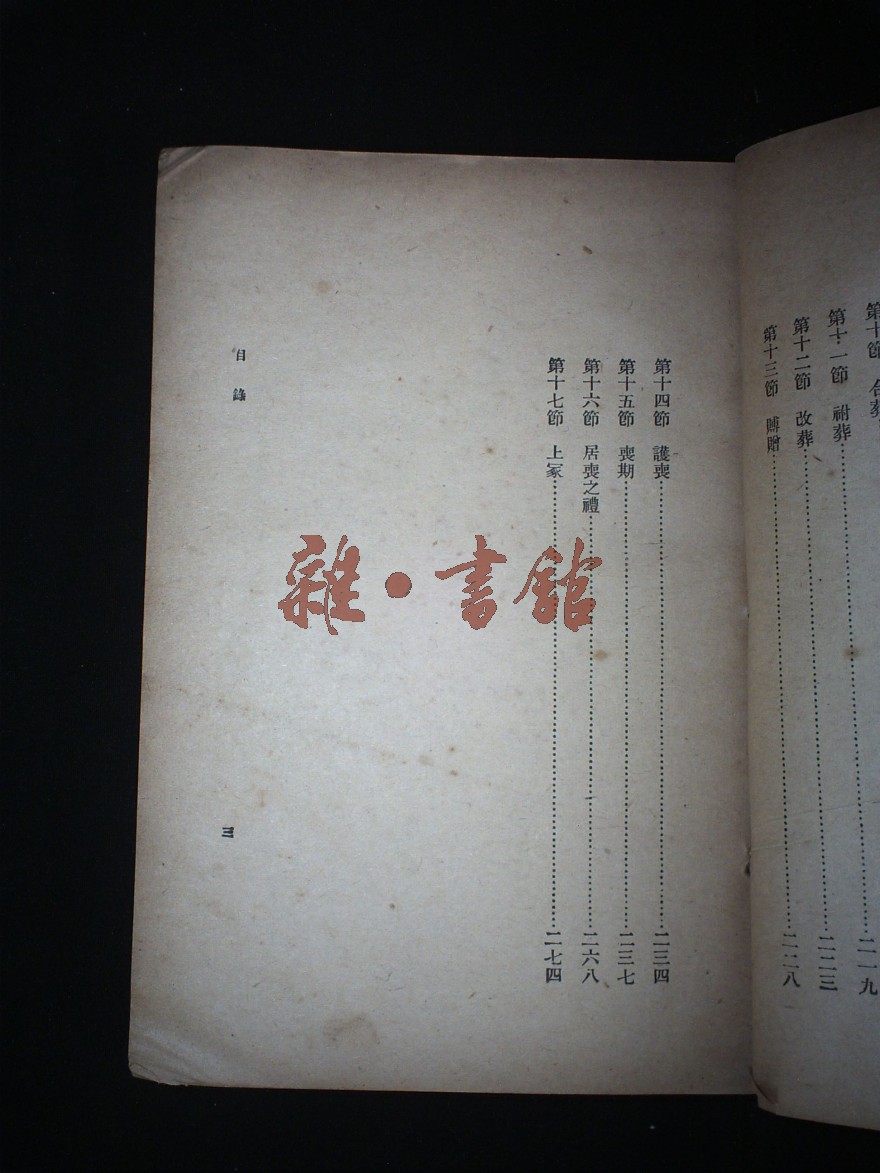 第十節 合葬……二一九
第十一節 祔葬……二二三
第十二節 改葬……二二八
第十三節 賻贈……
第十四節 護喪……二三四
第十五節 喪期……二三七
第十六節 居喪之禮……二六八
第十七節 上冢……二七四
目錄
三
雜·書館